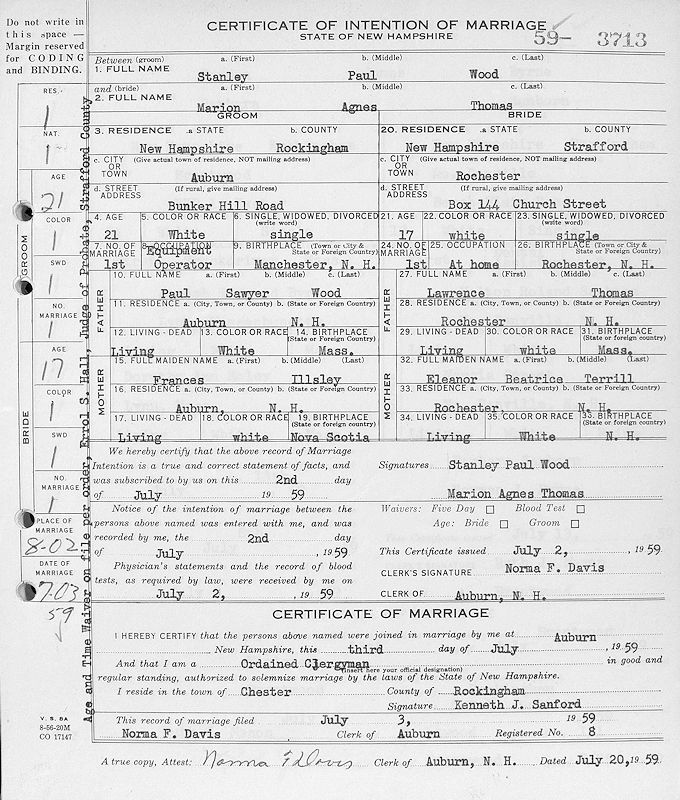 Do not write in
this space —
Margin reserved
for CODING
and BINDING.
CERTIFICATE OF INTENTION OF MARRIAGE
STATE OF NEW HAMPSHIRE
59- 3713
Between (groom) a. (First) b. (Middle) c. (Last)
1. FULL NAME Stanley Paul Wood
and (bride) a. (First) b. (Middle) c. (Last)
2. FULL NAME Marion Agnes Thomas
GROOM BRIDE
3. RESIDENCE a. STATE b. COUNTY 20. RESIDENCE a. STATE b. COUNTY
New Hampshire Rockingham New Hampshire Strafford
c. CITY OR TOWN (Give actual town of residence, NOT mailing address) c. CITY OR TOWN (Give actual town of residence, NOT mailing address)
Auburn Rochester
d. STREET ADDRESS (If rural, give mailing address) d. STREET ADDRESS (If rural, give mailing address)
Bunker Hill Road Box 144 Church Street
4. AGE 5. COLOR OR RACE 6. SINGLE, WIDOWED, DIVORCED (write word) 21. AGE 22. COLOR OR RACE 23. SINGLE, WIDOWED, DIVORCED (write word)
21 White single 17 white single
7. NO. OF MARRIAGE 8. OCCUPATION 9. BIRTHPLACE (Town or City & State or Foreign Country) 24. NO. OF MARRIAGE 25. OCCUPATION 26. BIRTHPLACE (Town or City & State or Foreign Country)
1st Equipment Operator Manchester, N. H. 1st At home Rochester, N. H.
FATHER 10. FULL NAME a. (First) b. (Middle) c. (Last) FATHER 27. FULL NAME a. (First) b. (Middle) c. (Last)
Paul Sawyer Wood Lawrence Thomas
11. RESIDENCE a. (City, Town, or County) b. (State or Foreign Country) 28. RESIDENCE a. (City, Town, or County) b. (State or Foreign Country)
Auburn N. H. Rochester N. H.
12. LIVING - DEAD 13. COLOR OR RACE 14. BIRTHPLACE (State or Foreign Country) 29. LIVING - DEAD 30. COLOR OR RACE 31. BIRTHPLACE (State or Foreign Country)
Living White Mass. Living white Mass.
MOTHER 15. FULL MAIDEN NAME a. (First) b. (Middle) (Last) MOTHER 32. FULL MAIDEN NAME a. (First) b. (Middle) c. (Last)
Frances Illsley Eleanor Beatrice Terrill
16. RESIDENCE a. (City, Town, or County) b. (State or Foreign Country) 33. RESIDENCE a. (City, Town, or County) b. (State or Foreign Country)
Auburn, N. H. Rochester, N. H.
17. LIVING - DEAD 18. COLOR OR RACE 19. BIRTHPLACE (State or Foreign Country) 34. LIVING - DEAD 35. COLOR OR RACE BIRTHPLACE (State or Foreign Country)
Living white Nova Scotia Living White N. H.
We hereby certify that the above record of Marriage
Intention is a true and correct statement of facts, and
was subscribed to by us on this 2nd day
of July 19 59
Signatures Stanley Paul Wood
Marion Agnes Thomas
Notice of the intention of marriage between the
persons above named was entered with me, and was
recorded by me, the 2nd day
of July , 19 59
Waivers: Five Day Blood Test
Age: Bride Groom
This Certificate issued July 2, , 19 59
Physician's statements and the record of blood
tests, as required by law, were received by me on
July 2, , 19 59
CLERK'S SIGNATURE Norma F. Davis
CLERK OF Auburn, N. H.
CERTIFICATE OF MARRIAGE
I HEREBY CERTIFY that the persons above named were joined in marriage by me at Auburn
New Hampshire, this third day of July , 19 59
And that I am a Ordained Clergyman in good and
(Insert here your official designation)
regular standing, authorized to solemnize marriage by the laws of the State of New Hampshire.
I reside in the town of Chester County of Rockingham
Signature Kenneth J. Sanford
This record of marriage filed July 3, 19 59
Norma F. Davis Clerk of Auburn Registered No. 8
A true copy, Attest: Norma F Davis Clerk of Auburn, N. H. Dated July 20, 19 59.
GROOM
RES.
1
NAT.
1
AGE
21
COLOR
1
SWD
1
NO. MARRIAGE
1
BRIDE
AGE
17
COLOR
1
SWD
1
NO. MARRIAGE
1
PLACE OF MARRIAGE
8-02
DATE OF MARRIAGE
7-03
59
V. S. 8A
8-56-20M
CO 17147
Age and Time Waiver on file per order, Errol S. Hall, Judge of Probate, Strafford County